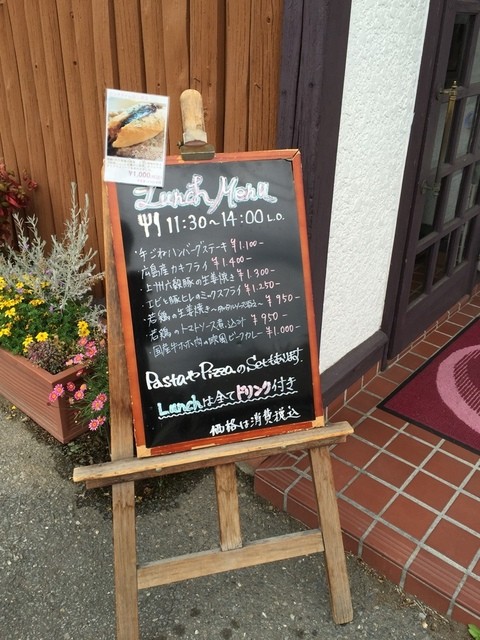 ¥1,000
Lunch Menu
11:30~14:00 L.O.
・手ごねハンバーグステーキ ¥1.100-
広島産カキフライ ¥1.400-
・上州六穀豚の生姜焼き ¥1.300-
・エビと豚ヒレのミックスフライ ¥1.250-
・若鶏の生姜焼き ¥950-
・若鶏のトマトソース煮込み ¥950-
・国産牛ホホ肉の欧風ビーフカレー ¥1.000-
PastaやPizzaのSetも有ります
Lunchは全てドリンク付き
価格は消費税込